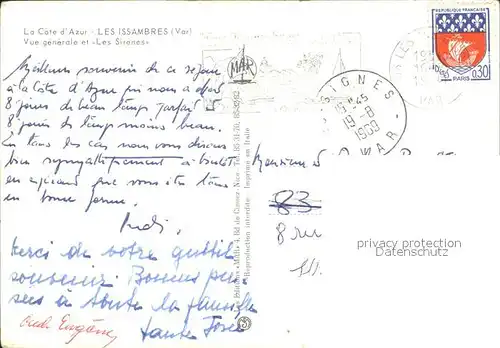 La Côte d'Azur - LES ISSAMBRES (Var)
Vue générale et «Les Sirènes»
MAR
Meilleur souvenir de ce séjour
à la Côte d'Azur qui nous a offert
8 jours de beau temps parfait et
8 jours de temps moins beau.
En tous les cas nous vous disons
bien sympathiquement à bientôt
en espérant que vous êtes tous
en bonne forme.
Merci de votre gentil
souvenir. Bonnes pen-
sées à toute la famille
Tante José
Oncle Eugène
Reproduction interdite - Imprimé en Italie
REPUBLIQUE FRANÇAISE
PARIS
0,30
SIGNES
15H45
19-8
1969
VAR
Monsieur
83
8 rue
privacy protection
Datenschutz